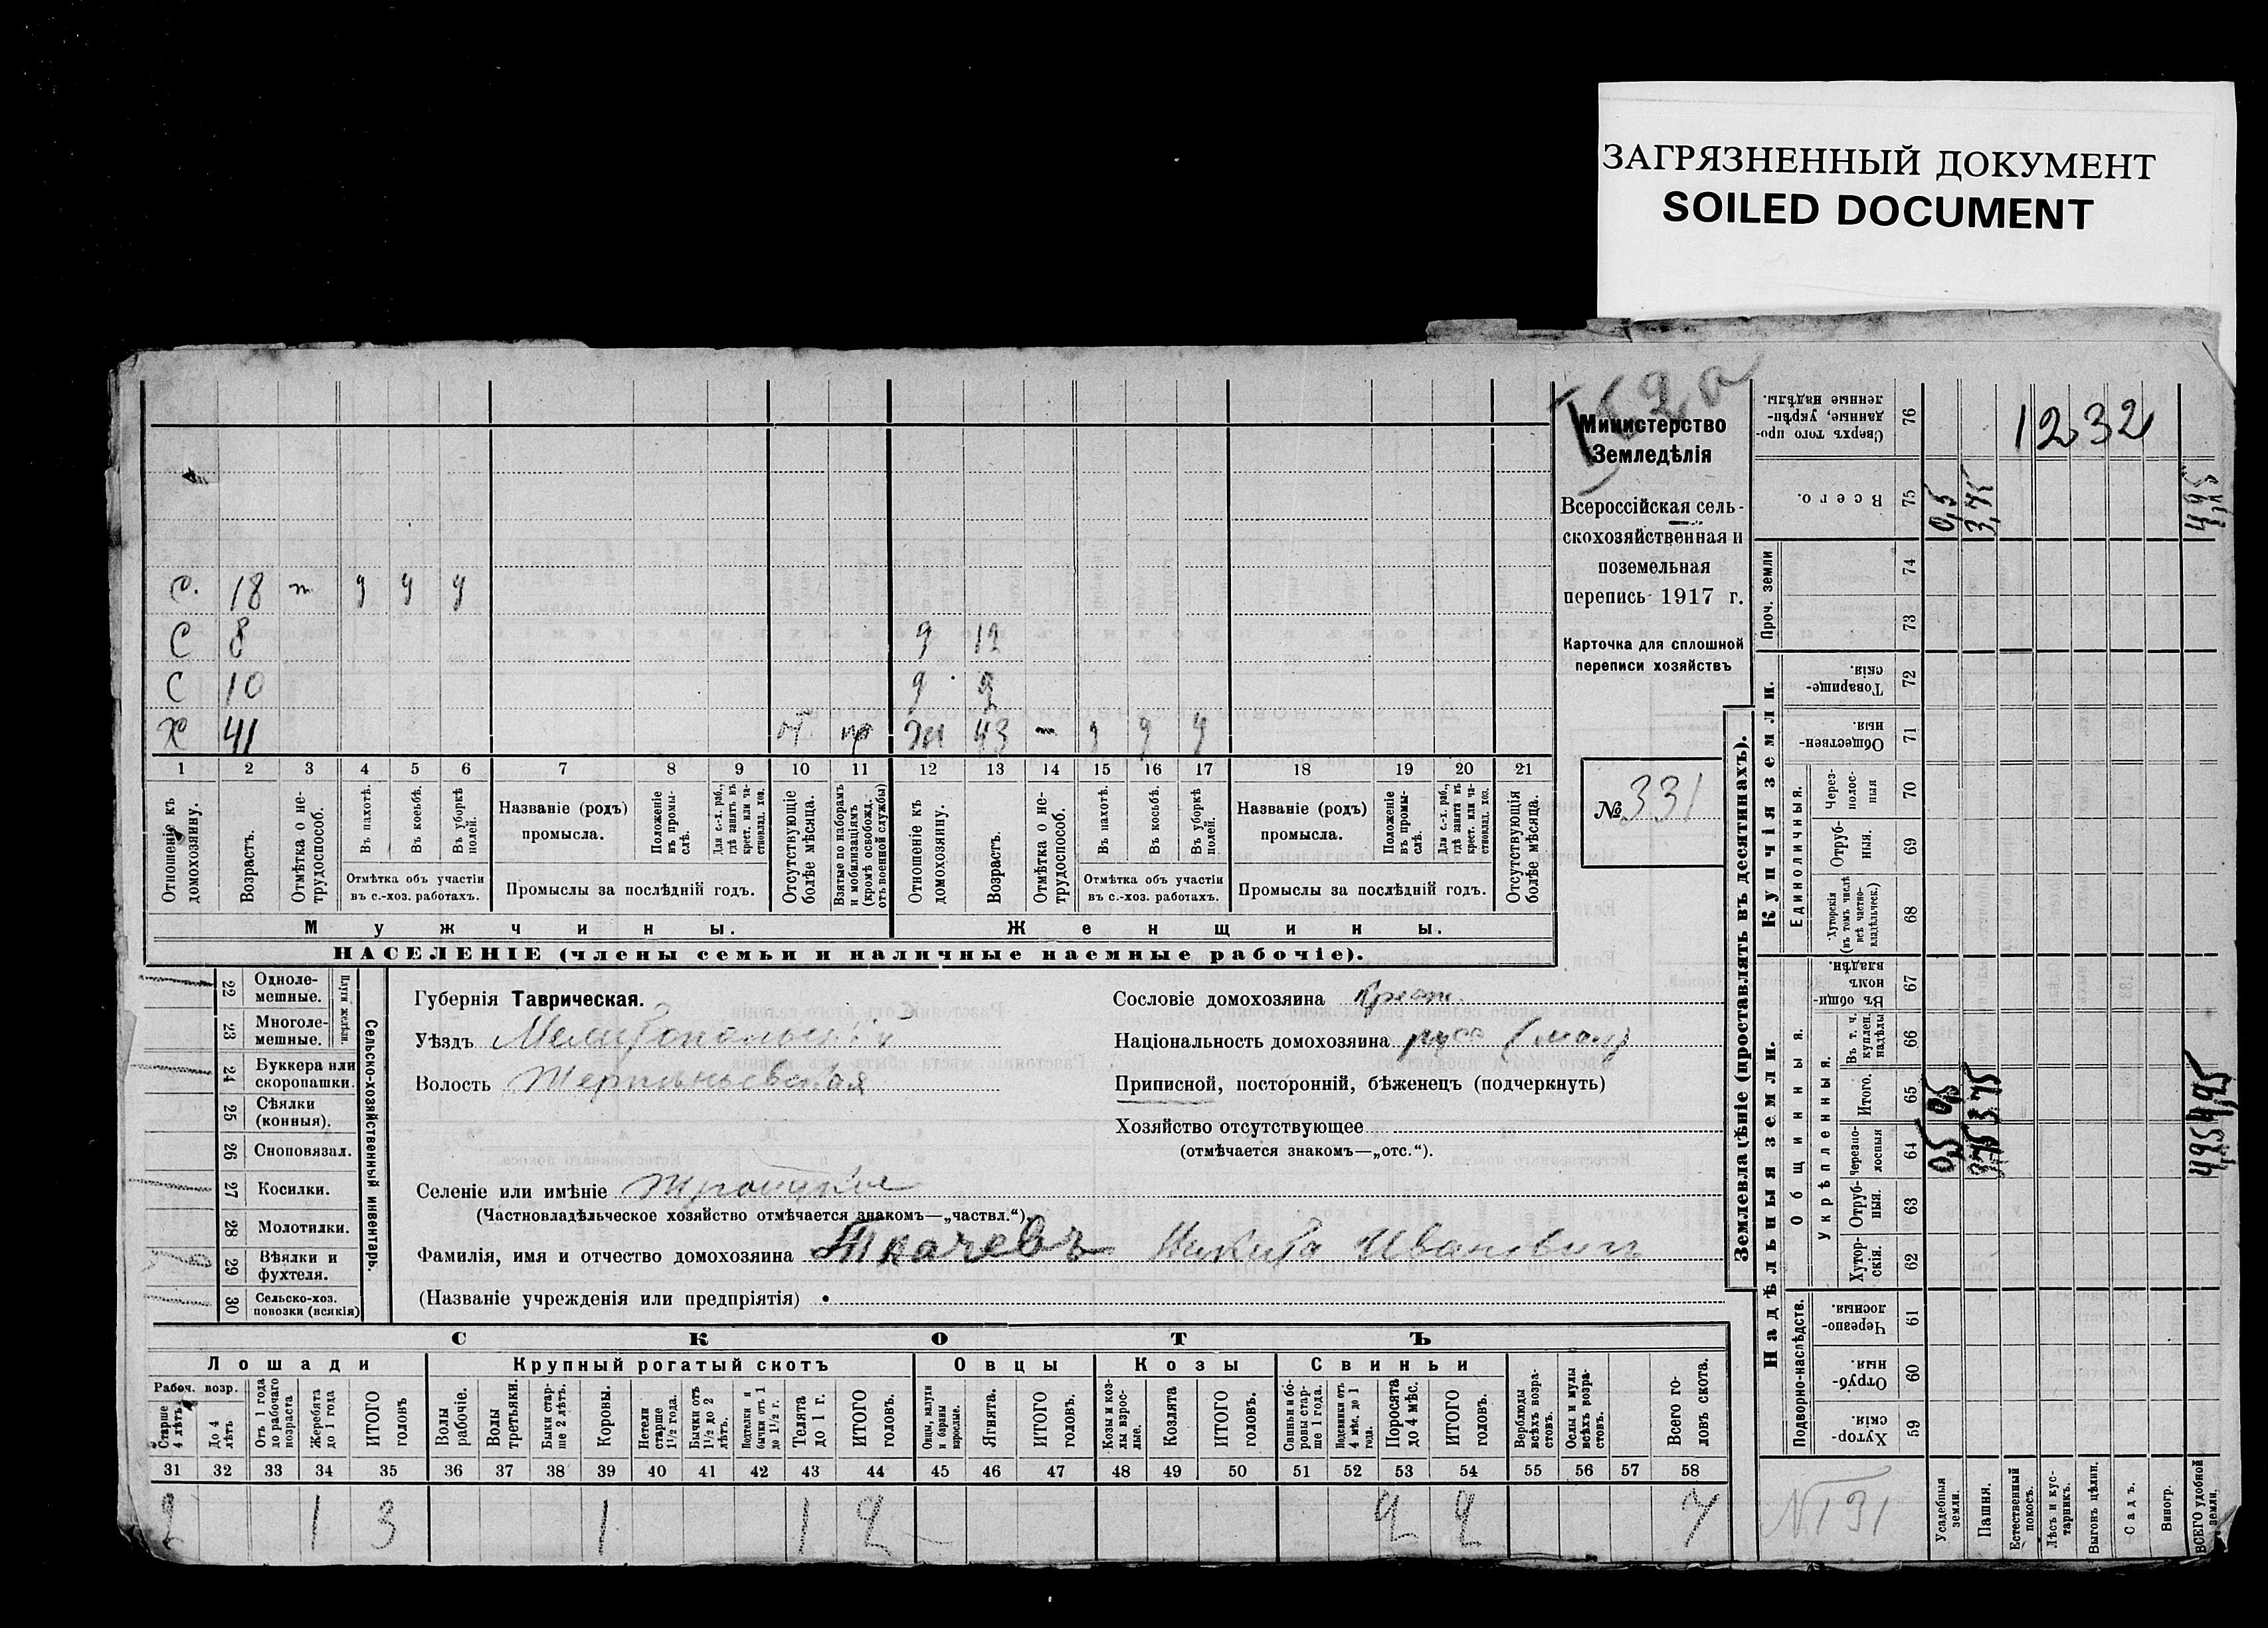 ЗАГРЯЗНЕННЫЙ ДОКУМЕНТ
SOILED DOCUMENT
Министерство
Земледѣлія
Всероссійская сель-
скохозяйственная и
поземельная
перепись 1917 г.
Карточка для сплошной
переписи хозяйствъ
№ 331
С. 18 т у у у
С 8 9 12
С 10 9 2
Х 41 от пр 43 т у у у
1 2 3 4 5 6 7 8 9 10 11 12 13 14 15 16 17 18 19 20 21
Отношеніе къ домохозяину.
Возрастъ.
Отмѣтка о не-трудоспособ.
Въ пахотѣ.
Въ косьбѣ.
Въ уборкѣ полей.
Отмѣтка объ участіи въ с.-хоз. работахъ.
Названіе (родъ) промысла.
Положеніе въ промы-слѣ.
Для с.-х. раб., гдѣ занятъ въ крест. или ча-стновлад. хоз.
Промыслы за послѣдній годъ.
Отсутствующіе болѣе мѣсяца.
Взятые по наборамъ и мобилизаціямъ (кромѣ освобожд. отъ военной службы)
Отношеніе къ домохозяину.
Возрастъ.
Отмѣтка о не-трудоспособ.
Въ пахотѣ.
Въ косьбѣ.
Въ уборкѣ полей.
Отмѣтка объ участіи въ с.-хоз. работахъ.
Названіе (родъ) промысла.
Положеніе въ промы-слѣ.
Для с.-х. раб., гдѣ занятъ въ крест. или ча-стновлад. хоз.
Промыслы за послѣдній годъ.
Отсутствующія болѣе мѣсяца.
Мужчины. Женщины.
НАСЕЛЕНІЕ (члены семьи и наличные наемные рабочіе).
22 Одноле-мешные.
23 Многоле-мешные.
Плуги желѣзн.
24 Буккера или скоропашки.
25 Сѣялки (конныя).
26 Сноповязал.
27 Косилки.
28 Молотилки.
29 Вѣялки и фухтеля.
30 Сельско-хоз. повозки (всякія)
Сельско-хозяйственный инвентарь.
Губернія Таврическая.
Уѣздъ Мелитопольскій
Волость Терпѣньевская
Сословіе домохозяина Крест.
Національность домохозяина русс
Приписной, посторонній, бѣженецъ (подчеркнуть)
Хозяйство отсутствующее
(отмѣчается знакомъ—„отс.“).
Селеніе или имѣніе Троицкое
(Частновладѣльческое хозяйство отмѣчается знакомъ—„частвл.“).
Фамилія, имя и отчество домохозяина Ткачевъ Никита Ивановичъ
(Названіе учрежденія или предпріятія)
СКОТЪ
Лошади Крупный рогатый скотъ Овцы Козы Свиньи
Рабоч. возр.
Старше 4 лѣтъ.
До 4 лѣтъ
Отъ 1 года до рабочаго возраста
Жеребята до 1 года
ИТОГО головъ
Волы рабочіе.
Волы третьяки.
Быки стар-ше 2 лѣтъ.
Коровы.
Нетели старше 1½ года.
Бычки отъ 1½ до 2 лѣтъ.
Подтелки и бычки отъ 1 до 1½ г.
Телята до 1 г.
ИТОГО головъ.
Овцы, валухи и бараны взрослые.
Ягнята.
ИТОГО головъ.
Козы и коз-лы взрос-лые.
Козлята
ИТОГО головъ.
Свиньи и бо-ровы стар-ше 1 года.
Подсвинки отъ 4 мѣс. до 1 года.
Поросята до 4 мѣс.
ИТОГО головъ.
Верблюды всѣхъ возра-стовъ.
Ослы и мулы всѣхъ возра-стовъ.
Всего го-ловъ скота.
31 32 33 34 35 36 37 38 39 40 41 42 43 44 45 46 47 48 49 50 51 52 53 54 55 56 57 58
2 1 3 1 1 2 2 2 7
Землевладѣніе (проставлять въ десятинахъ).
Надѣльныя земли. Купчія земли. Проч. земли
Подворно-наслѣдств.
Общинныя.
Укрѣпленныя.
Единоличныя.
Хутор-скія. 59
Отруб-ныя. 60
Черезпо-лосныя 61
Хутор-скія. 62
Отруб-ныя. 63
Черезпо-лосныя 64
Итого. 65
Въ т. ч. куплен. надѣлы 66
Въ общи-номъ владѣн. 67
Хуторскія (въ томъ числѣ всѣ частно-владѣльческ.) 68
Отруб-ныя. 69
Через-полос-ныя 70
Обществен-ныя. 71
Товарище-скія. 72
73
74
Всего. 75
Сверхъ того про-данные, укрѣп-ленные надѣлы. 76
1232
0,5 3,75
Усадебныя земли.
Пашня.
Естественный покосъ.
Лѣсъ и кус-тарникъ.
Выгонъ цѣлин.
Садъ.
Виногр.
ВСЕГО удобной земли.